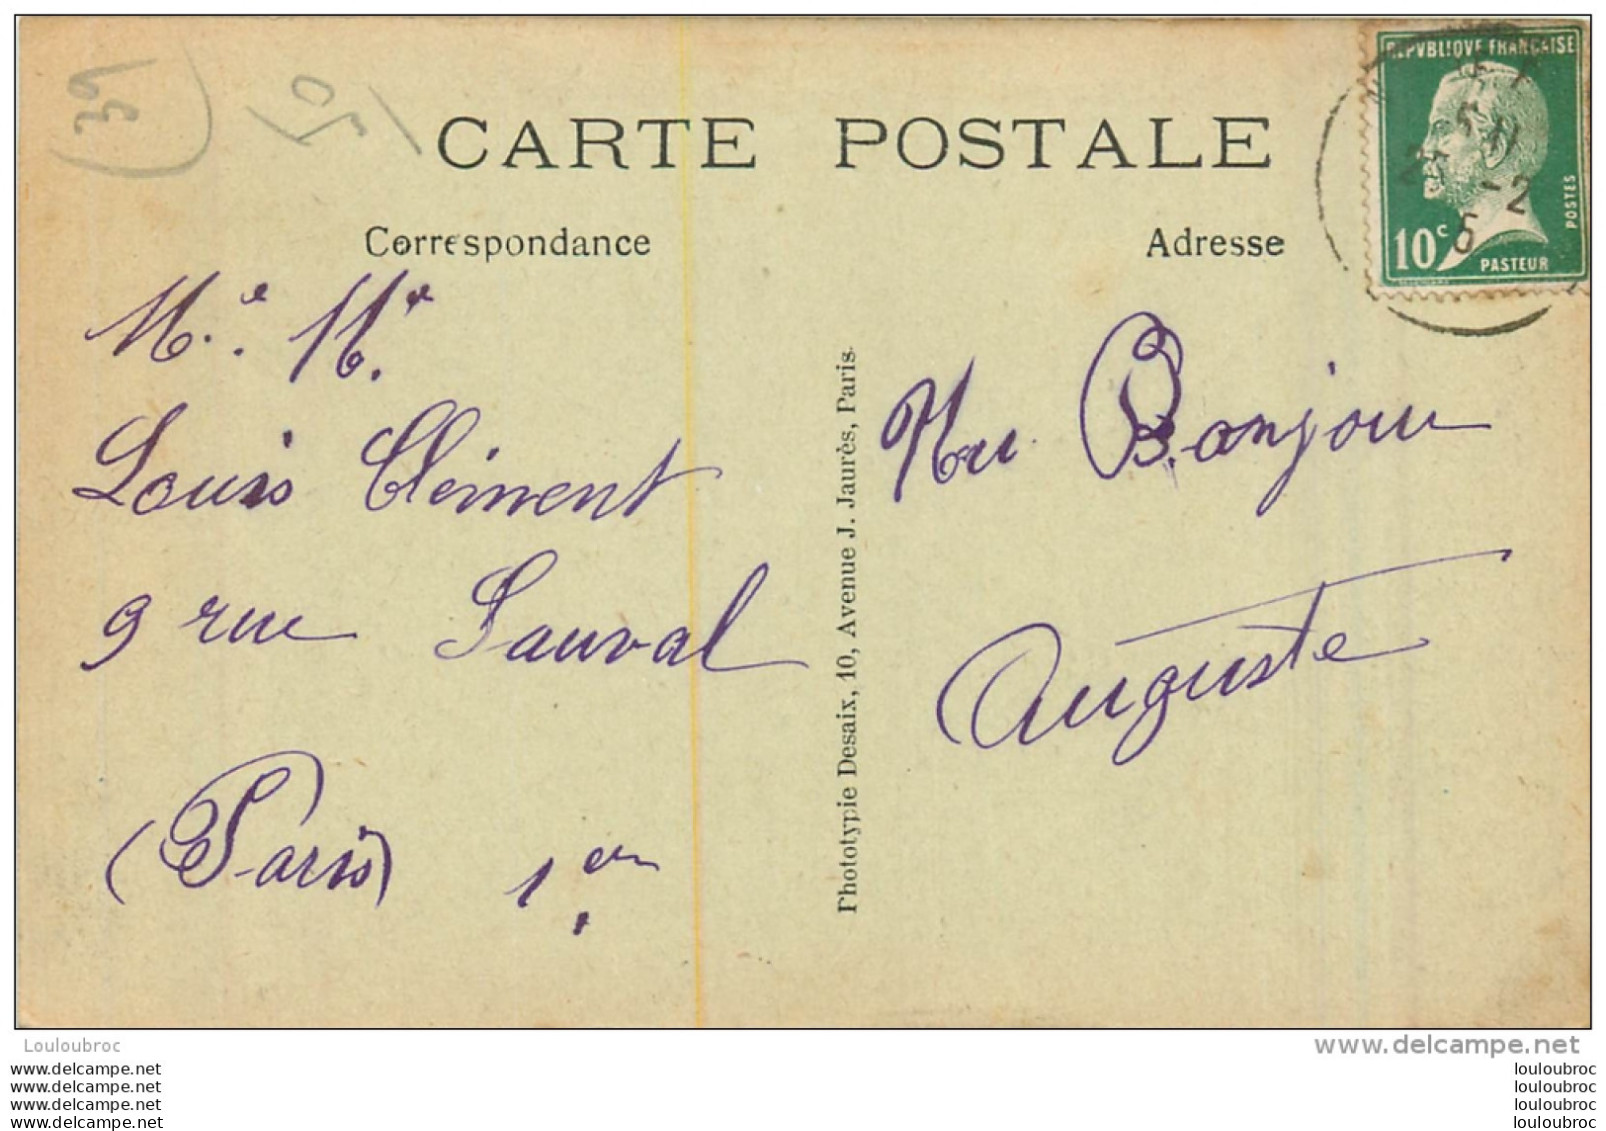 39
CARTE POSTALE
Correspondance
Adresse
REPVBLIQVE FRANCAISE
POSTES
10c
PASTEUR
25 -2
Me. Mr.
Louis Clément
9 rue Sauval
(Paris) 1er
Phototypie Desaix, 10, Avenue J. Jaurès, Paris.
Bonjour
Auguste
Louloubroc
www.delcampe.net
www.delcampe.net
www.delcampe.net
www.delcampe.net
www.delcampe.net
louloubroc
louloubroc
louloubroc
louloubroc